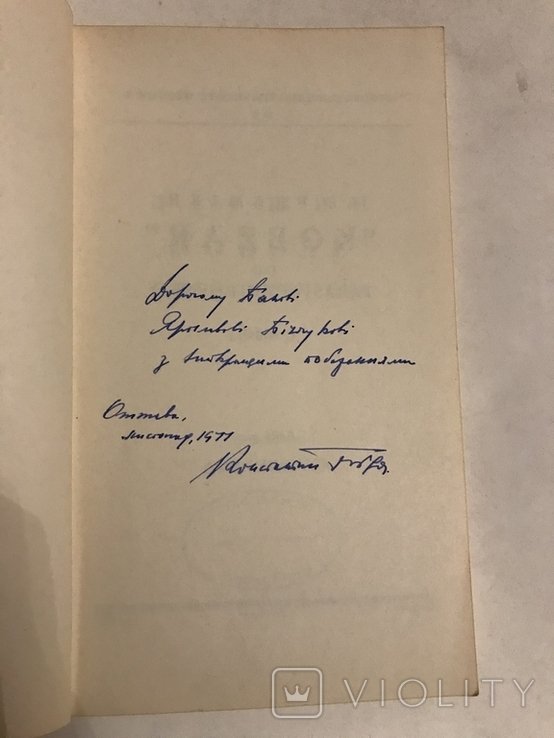 Дорогому Панові
Ярославові Білчукові
з найкращими побажаннями
Оттава,
листопад, 1971
Константин Біда.
VIOLITY